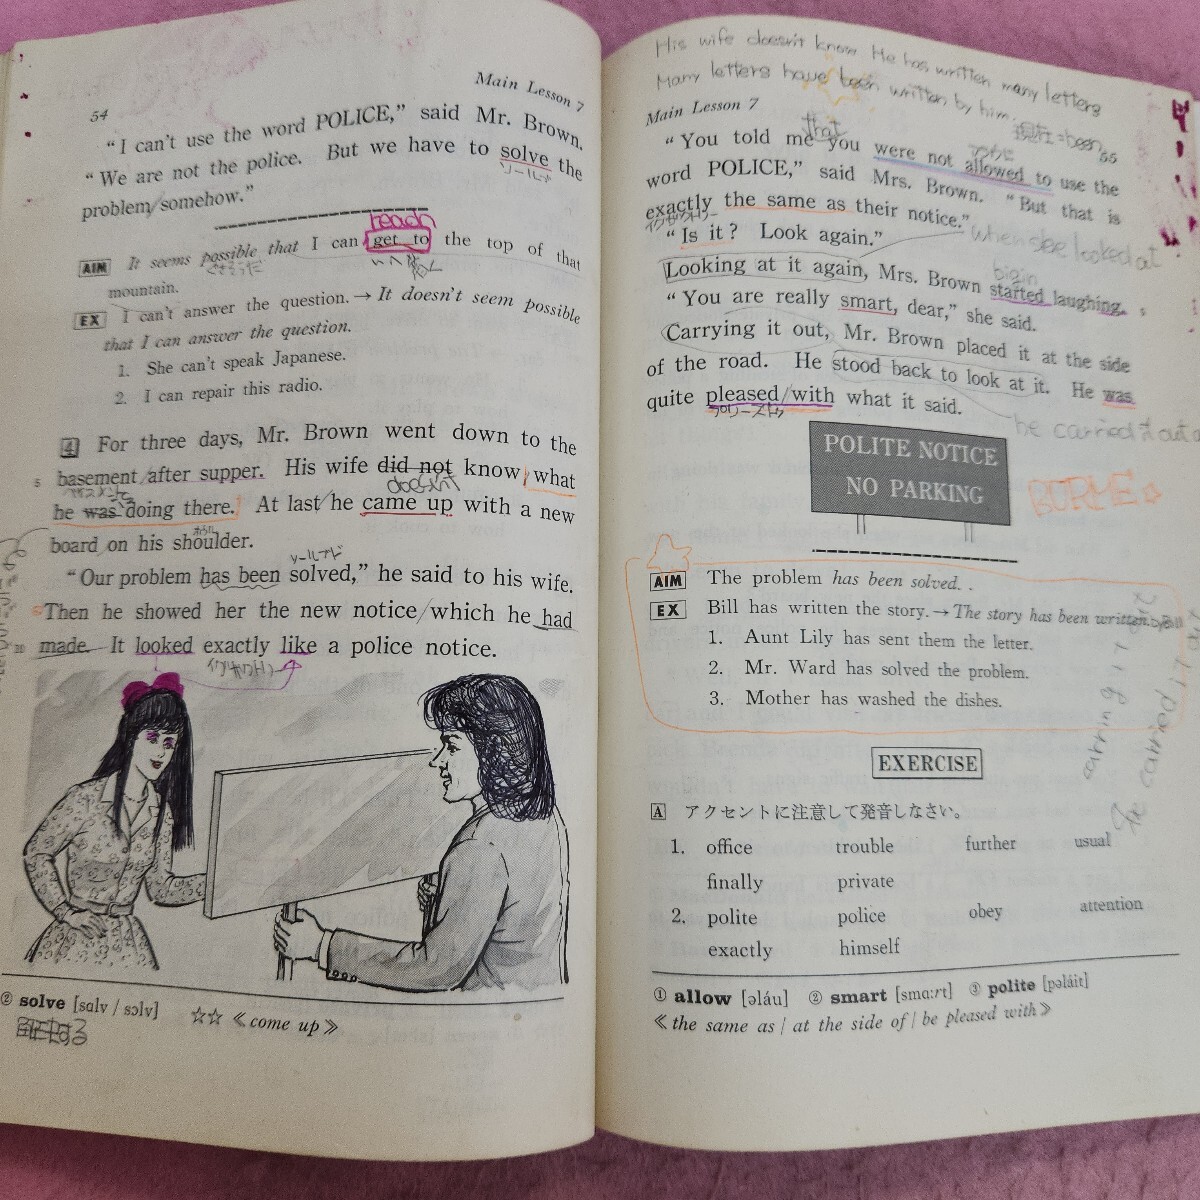 54
Main Lesson 7
"I can't use the word POLICE," said Mr. Brown.
"We are not the police. But we have to solve the
ソールブ
problem/somehow."
reach
AIM It seems possible that I can get to the top of that
mountain.
EX I can't answer the question. → It doesn't seem possible
that I can answer the question.
1. She can't speak Japanese.
2. I can repair this radio.
4 For three days, Mr. Brown went down to the
5 basement/after supper. His wife did not know/what
he was doing there. At last/he came up with a new
board on his shoulder.
"Our problem has been solved," he said to his wife.
Then he showed her the new notice/which he had
10 made. It looked exactly like a police notice.
イグザクトリー
② solve [salv / sɔlv] ☆☆ ≪come up≫
His wife doesn't know He has written many letters
Many letters have been written by him.
現在=been
Main Lesson 7
55
that
"You told me you were not allowed to use the
word POLICE," said Mrs. Brown. "But that is
exactly the same as their notice."
イグザクトリー
"Is it? Look again."
when she looked at
Looking at it again, Mrs. Brown started laughing.
"You are really smart, dear," she said.
Carrying it out, Mr. Brown placed it at the side
of the road. He stood back to look at it. He was
quite pleased/with what it said.
プリーズド
he carried it out a
POLITE NOTICE
NO PARKING
AIM The problem has been solved.
EX Bill has written the story. → The story has been written.
1. Aunt Lily has sent them the letter.
2. Mr. Ward has solved the problem.
3. Mother has washed the dishes.
he carried it out
EXERCISE
A アクセントに注意して発音しなさい。
1. office trouble further usual
finally private
2. polite police obey attention
exactly himself
① allow [əláu] ② smart [smɑːrt] ③ polite [pəláit]
≪the same as / at the side of / be pleased with≫